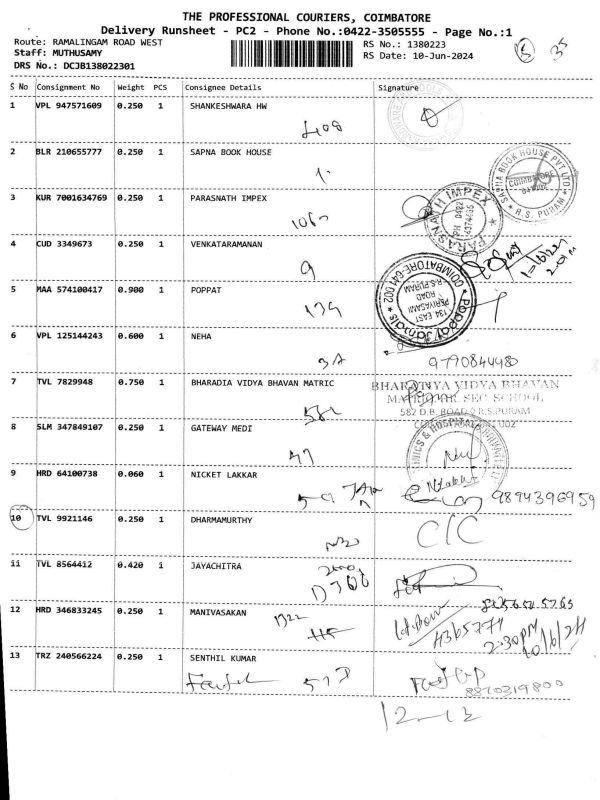 THE PROFESSIONAL COURIERS, COIMBATORE
Delivery Runsheet - PC2 - Phone No.:0422-3505555 - Page No.:1
Route: RAMALINGAM ROAD WEST RS No.: 1380223
Staff: MUTHUSAMY RS Date: 10-Jun-2024
DRS No.: DCJB138022301
35
S No Consignment No Weight PCS Consignee Details Signature
1 VPL 947571609 0.250 1 SHANKESHWARA HW
2 BLR 210655777 0.250 1 SAPNA BOOK HOUSE
SAPNA BOOK HOUSE PVT LTD
COIMBATORE
R.S. PURAM
3 KUR 7001634769 0.250 1 PARASNATH IMPEX
PARASNATH IMPEX
4 CUD 3349673 0.250 1 VENKATARAMANAN
9
5 MAA 574100417 0.900 1 POPPAT
COIMBATORE-641 002
134 EAST
PERIYASAMI
ROAD
R.S.PURAM
Poppat Jamals
134
6 VPL 125144243 0.600 1 NEHA
3A 9790844480
7 TVL 7829948 0.750 1 BHARADIA VIDYA BHAVAN MATRIC
VIDYA BHAVAN
SEC SCHOOL
582 D.B. ROAD R.S.PURAM
582
8 SLM 347849107 0.250 1 GATEWAY MEDI
9 HRD 64100738 0.060 1 NICKET LAKKAR
9894396959
10 TVL 9921146 0.250 1 DHARMAMURTHY
C/C
11 TVL 8564412 0.420 1 JAYACHITRA
D306
12 HRD 346833245 0.250 1 MANIVASAKAN
1322
2.30pm
10/6/24
13 TRZ 240566224 0.250 1 SENTHIL KUMAR
8870319800
12-13